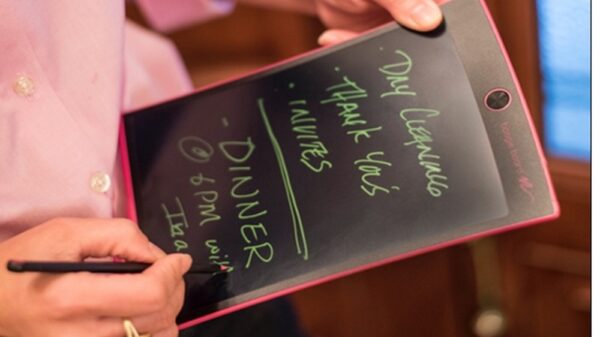 · DRY CLEANING
· THANK YOU'S
· INVITES
- DINNER
@ 6PM with
boogie board